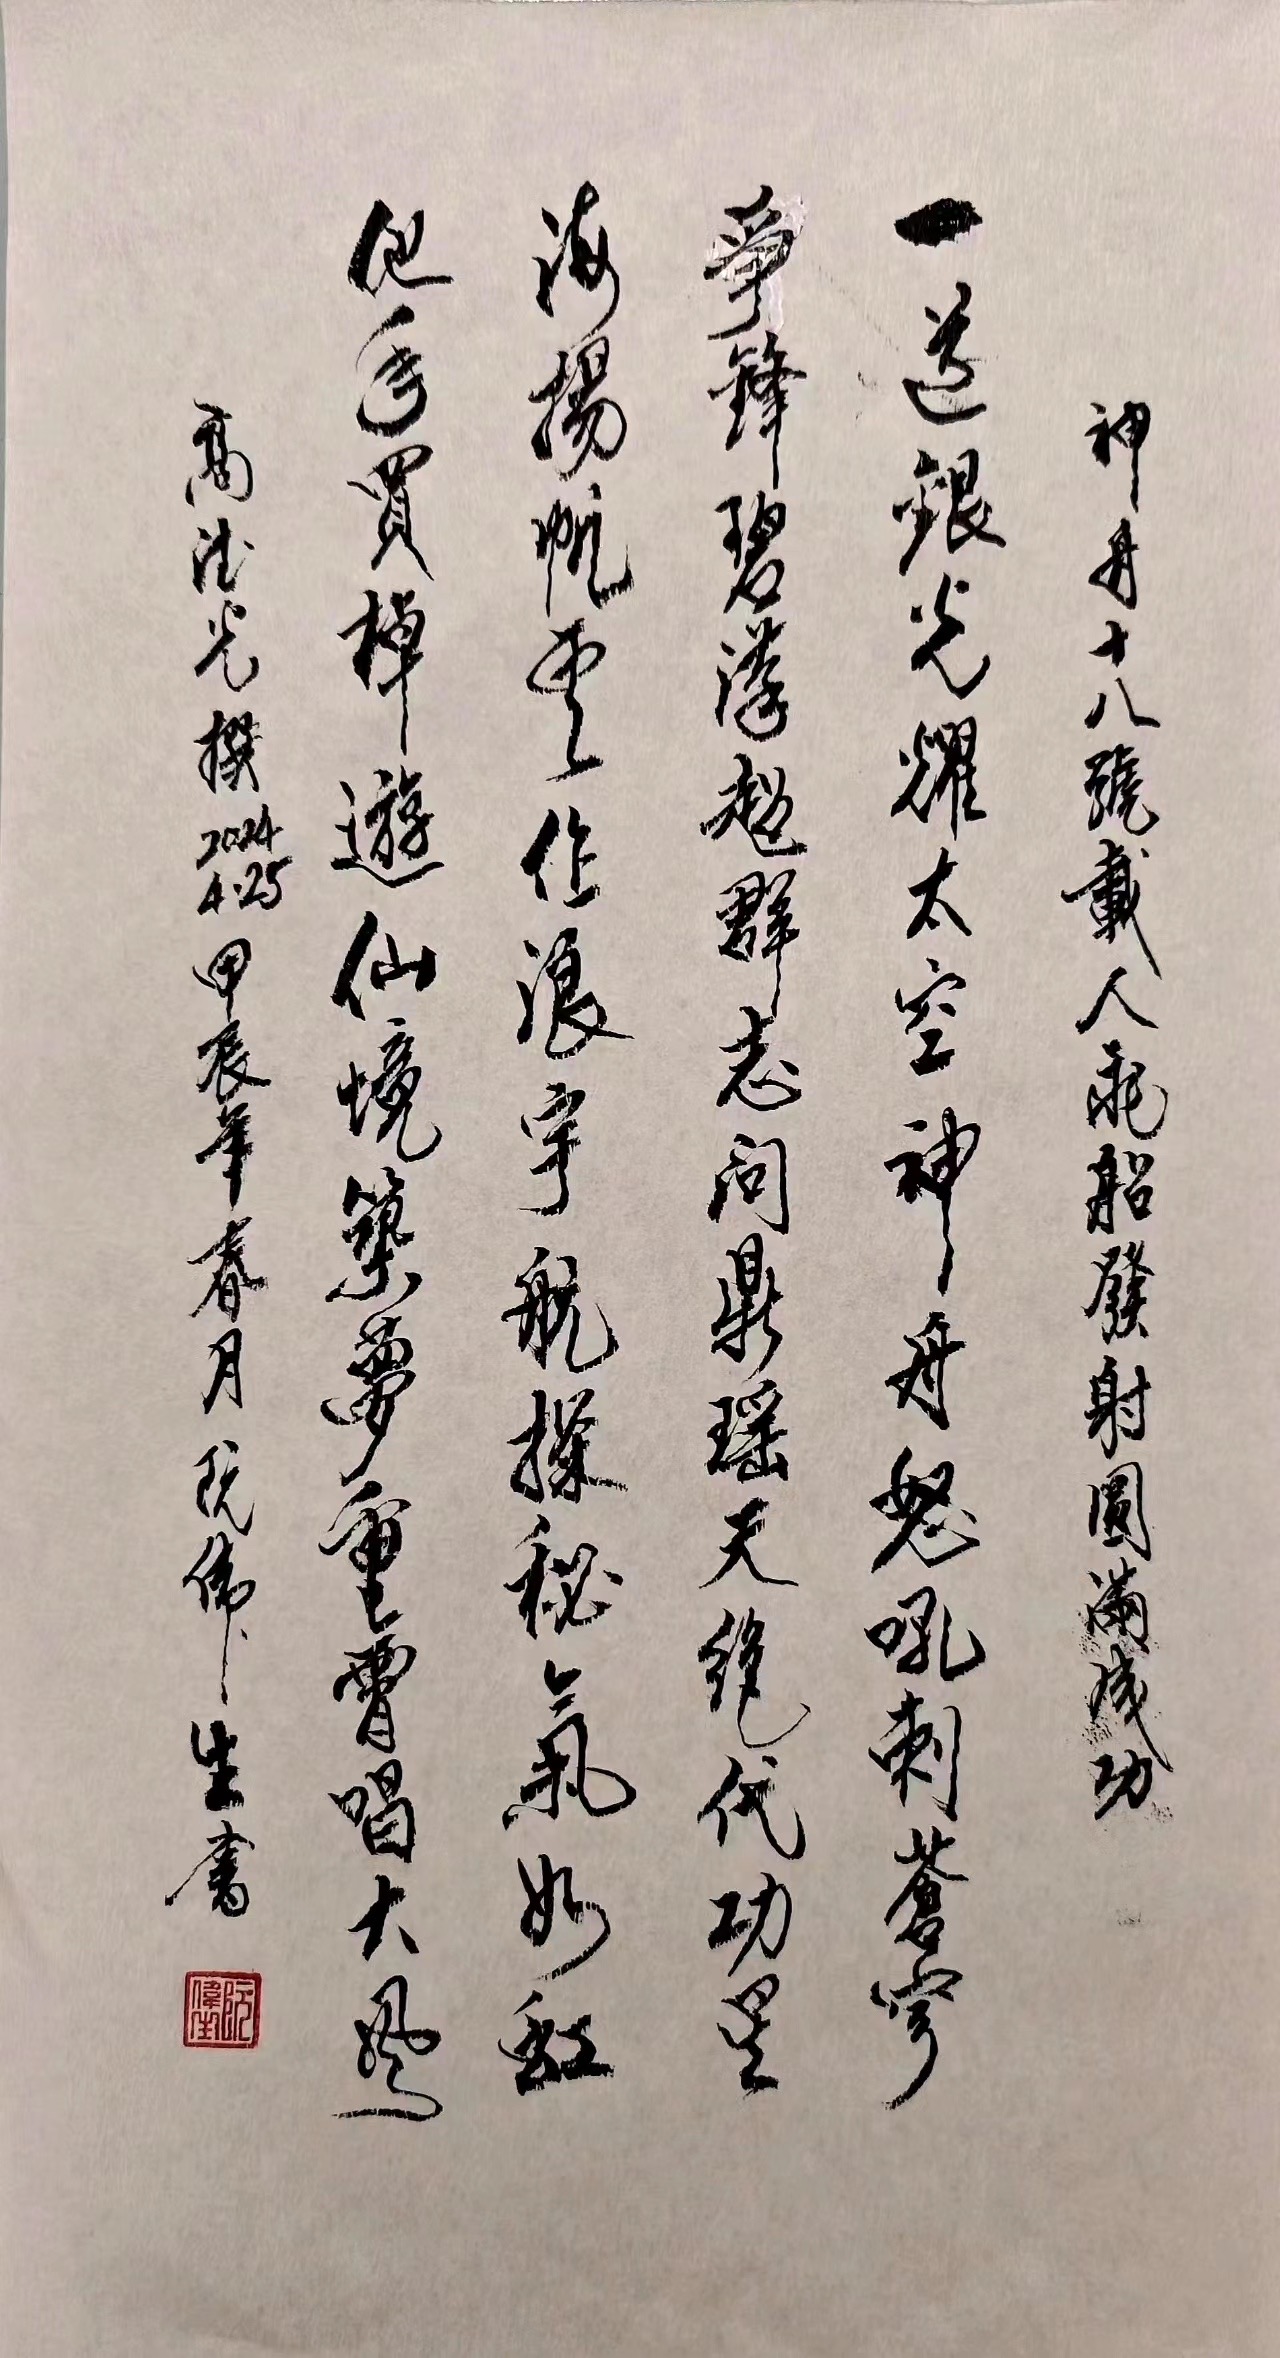 神舟十八號載人飛船發射圓滿成功
一道銀光耀太空神舟怒吼刺蒼穹
爭鋒碧漢超群志問鼎瑶天絕代功星
海揚帆雲作浪宇航探秘氣如虹
他年買棹遊仙境築夢重霄唱大風
高德光撰2024 4.25甲辰年春月阮偉生書
阮偉生